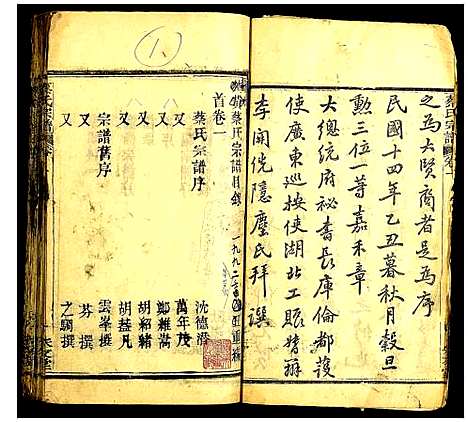 之為大賢裔者是為序
民國十四年乙丑暮秋月穀旦
勲三位一等嘉禾章
大總統府祕書長庫倫都護
使廣東巡按使湖北工賑督辦
李開侁隱塵氏拜譔
蔡氏宗譜 卷一
1
蔡氏宗譜目錄
首卷一
蔡氏宗譜序 沈德潛
又 萬年茂
又 鄭維嵩
又 胡紹鏞
又 胡基凡
宗譜舊序 雲峯撰
又 芬撰
又 之驥撰